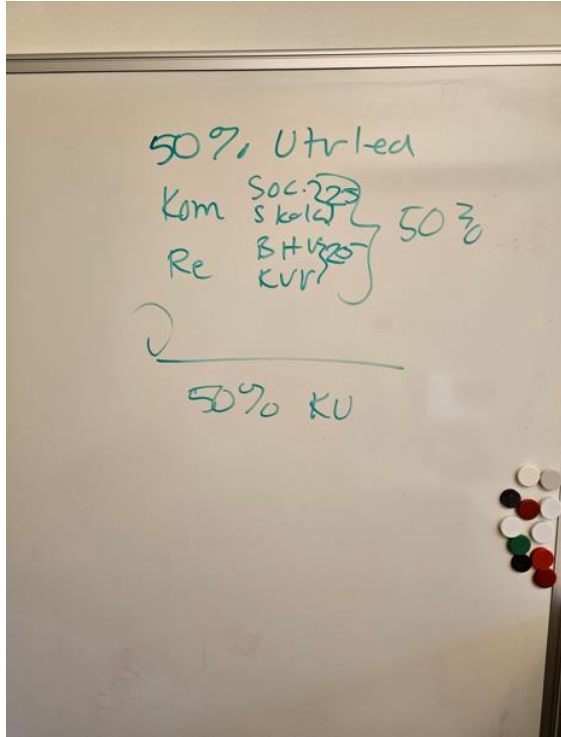 50% Utvled
Kom Soc. 25
Skola 50%
Re BHV 25
KVV
50% KU